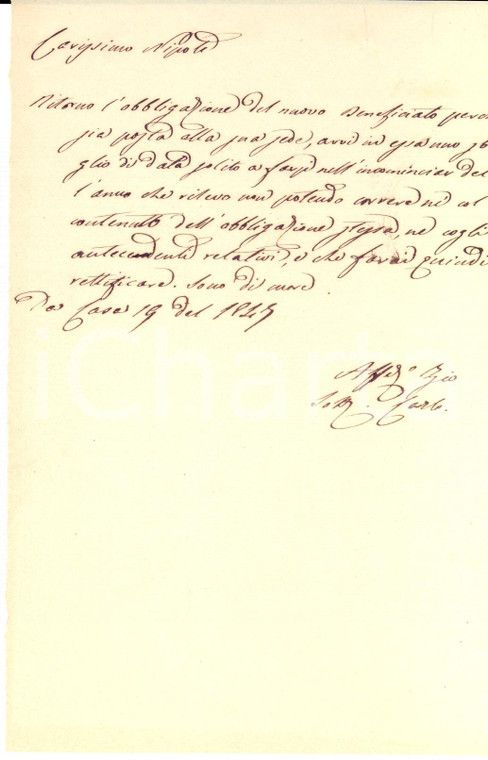 Carissimo Nipote
Ritorno l'obbligazione del nuovo Beneficiato perchè
sia posta alla sua sede, avvi in essa uno sba
glio di data solito a farsi nell'incominciar del
l'anno che rilevo non potendo correre nè col
contenuto dell'obbligazione stessa, nè cogli
antecedenti relativi, e che farai quindi
rettificare. Sono di cuore
Da Casa 19 del 1845
Affez.o Zio
Carlo.
iCharta